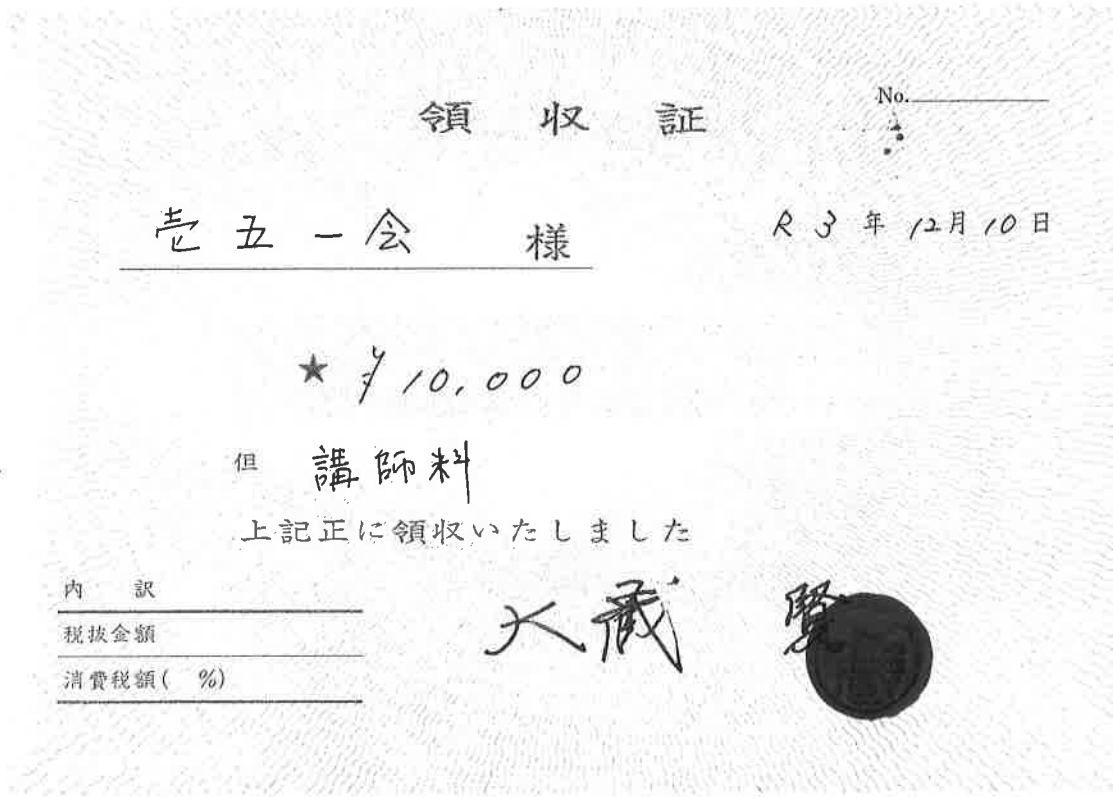 領収証
No.
壱五一会 様
R3年12月10日
★ ¥10,000
但 講師料
上記正に領収いたしました
内訳
税抜金額
消費税額( %)
大蔵 賢